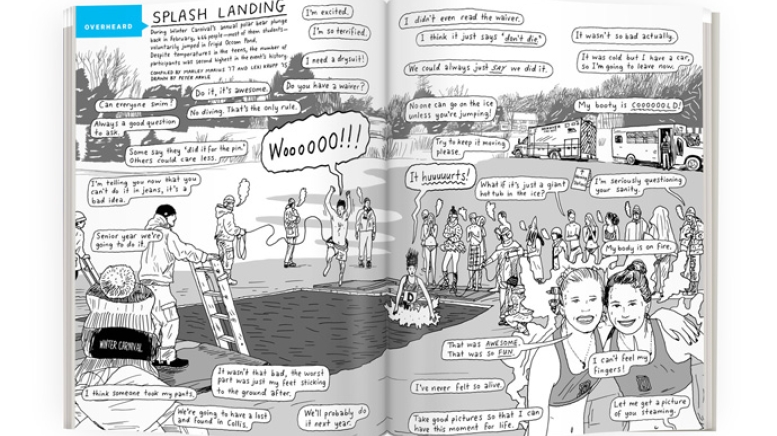 OVERHEARD
SPLASH LANDING
During Winter Carnival's annual polar bear plunge
back in February, 666 people—most of them students—
voluntarily jumped in frigid Occom Pond.
Despite temperatures in the teens, the number of
participants was second highest in the event's history.
COMPILED BY MARLEY MARIUS '17 AND LEXI KRUPP '15
DRAWN BY PETER ARKLE
I'm excited.
I'm so terrified.
I need a drysuit!
Do it, it's awesome.
Do you have a waiver?
Can everyone swim?
No diving. That's the only rule.
Always a good question
to ask.
Some say they "did it for the pin."
Others could care less.
WoooooO!!!
I'm telling you now that you
can't do it in jeans, it's a
bad idea.
Senior year we're
going to do it.
WINTER CARNIVAL
It wasn't that bad, the worst
part was just my feet sticking
to the ground after.
I think someone took my pants.
We're going to have a lost
and found in Collis.
We'll probably do
it next year.
I didn't even read the waiver.
I think it just says "don't die"
We could always just say we did it.
It wasn't so bad actually.
It was cold but I have a car,
so I'm going to leave now.
No one can go on the ice
unless you're jumping!
My booty is COOOOOLD!
Try to keep it moving
please.
It huuuuurts!
What if it's just a giant
hot tub in the ice?
I'm seriously questioning
your sanity.
My body is on fire.
D
That was AWESOME.
That was so FUN.
I can't feel my
fingers!
I've never felt so alive.
Take good pictures so that I can
have this moment for life.
Let me get a picture
of you steaming.